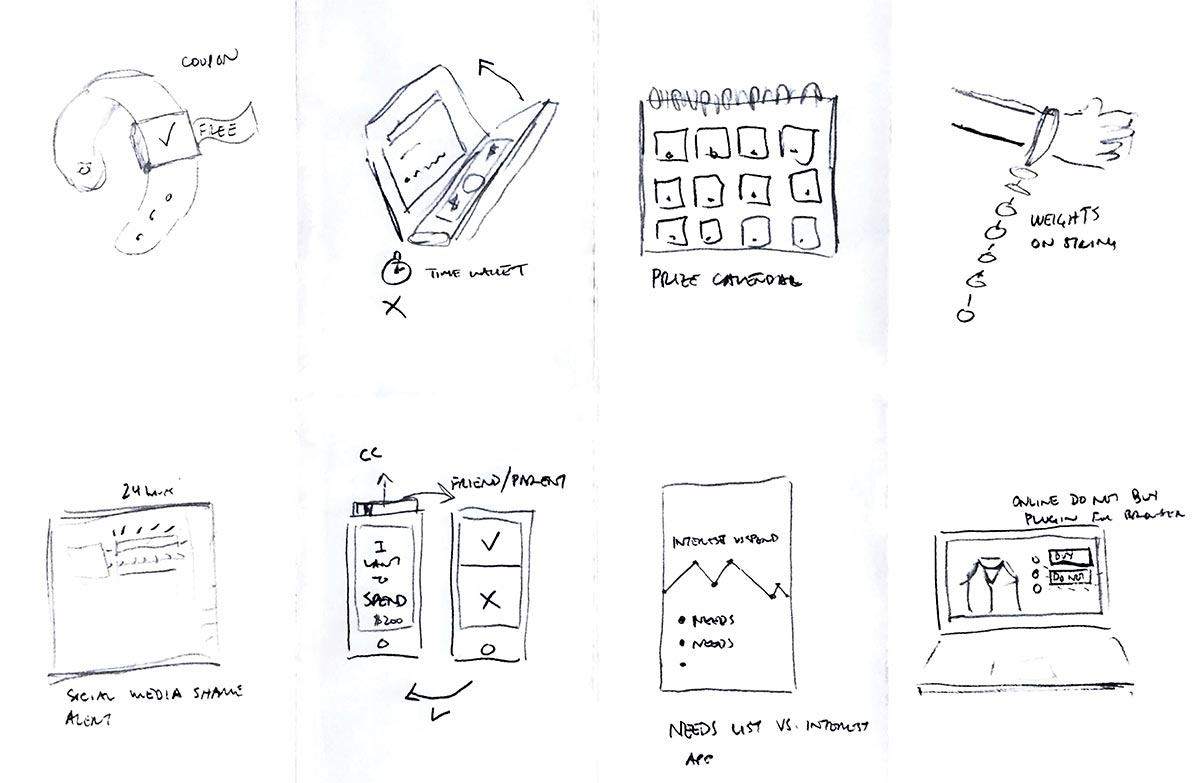 COUPON
FREE
TIME WALLET
PRIZE CALENDAR
WEIGHTS
ON STRING
24 HOURS
SOCIAL MEDIA SHAME
ALERT
CC
FRIEND/PARENT
I
WANT
TO
SPEND
$200
INTEREST VS SPEND
NEEDS
NEEDS
NEEDS LIST VS. INTEREST
APP
ONLINE DO NOT BUY
PLUGIN FOR BROWSER
BUY
DO NOT